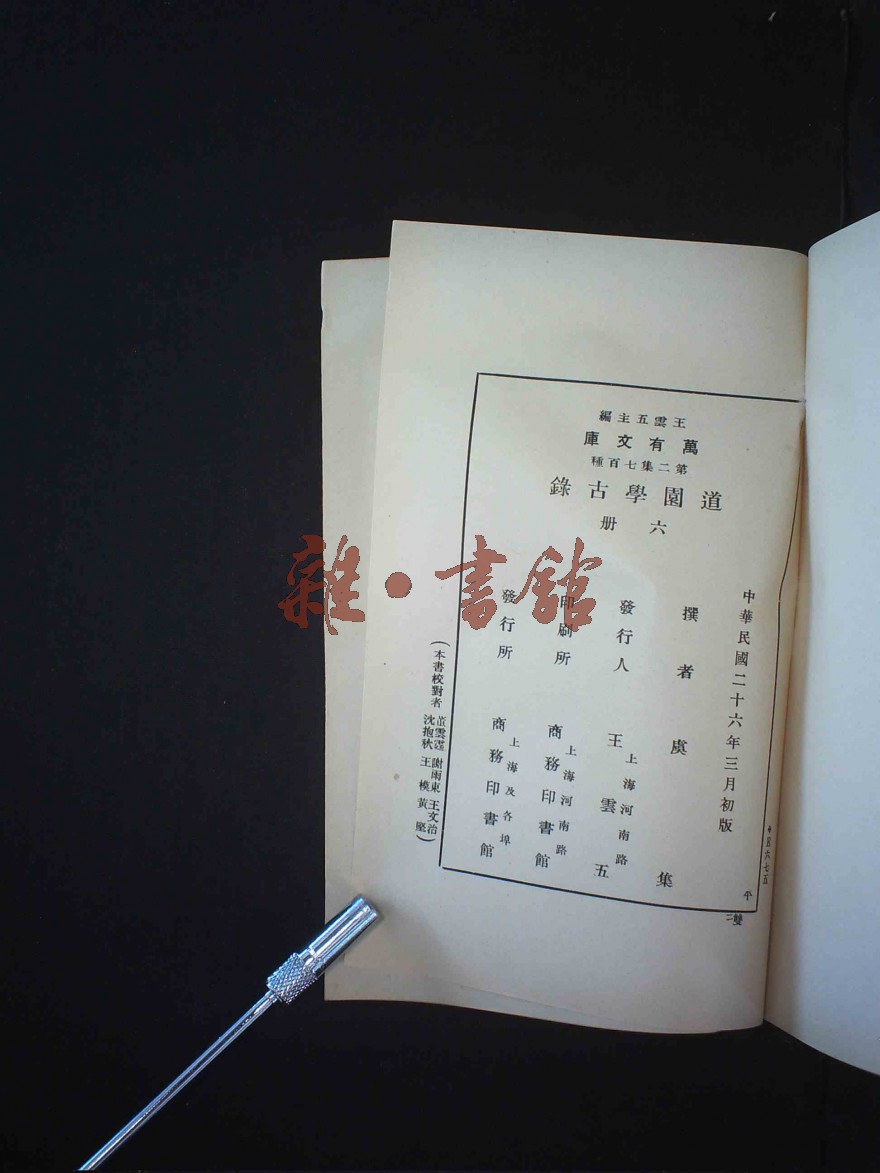 王雲五主編
萬有文庫
第二集七百種
道園學古錄
六册
中華民國二十六年三月初版
撰者虞集
發行人王雲五
上海河南路
印刷所商務印書館
上海河南路
發行所商務印書館
上海及各埠
(本書校對者
謝雨東 王文治
沈抱秋 王模 黃堅)
平
雜·書館